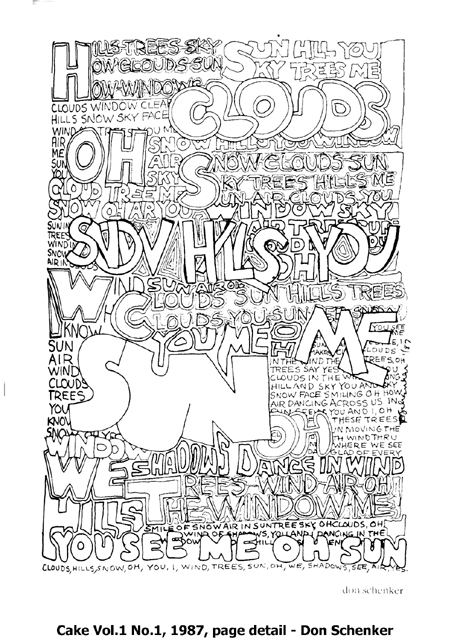 HILLS TREES SKY
HOW CLOUDS SUN
HOW WINDOWS
SUN HILL YOU
SKY TREES ME
CLOUDS WINDOW CLEAR
HILLS SNOW SKY FACE
CLOUDS
WIND
AIR
ME
SUN
YOU
OH
SNOW HILLS YOU WINDOW
AIR
SKY
SNOW CLOUDS SUN
SKY TREES HILLS ME
SUN AIR CLOUDS YOU
CLOUD TREE ME
SNOW
WINDOW SKY
SUN IN
TREES
WIND IN
SNOW
AIR IN
SUN HILLS YOU
OH
WIND SUN AIR OH
CLOUDS SUN HILLS TREES
CLOUDS YOU SUN
WE
KNOW
YOU ME
OH
ME
YOU SEE
SUN
AIR
WIND
CLOUDS
TREES
YOU
KNOW
SNOW
SUN
CLOUDS
IN THE WIND THE TREES, OH
TREES SAY YES
CLOUDS IN THE
HILL AND SKY YOU AND SKY
SNOW FACE SMILING OH HOW
AIR DANCING ACROSS US IN
YOU AND I, OH
THESE TREES
IN MOVING THE
WIND THRU
WHERE WE SEE
GLAD OF EVERY
OH
WINDOW
WE
SHADOWS DANCE IN WIND
TREES-WIND-AIR-OH
HILLS
THE WINDOW ME
SMILE OF SNOW AIR IN SUN TREE SKY, OH CLOUDS, OH
WIND OF SHADOWS, YOU AND I DANCING IN THE
WINDOW
YOU SEE ME OH SUN
CLOUDS, HILLS, SNOW, OH, YOU, I, WIND, TREES, SUN, OH, WE, SHADOWS, SEE, AIR, YES.
don schenker
Cake Vol.1 No.1, 1987, page detail - Don Schenker